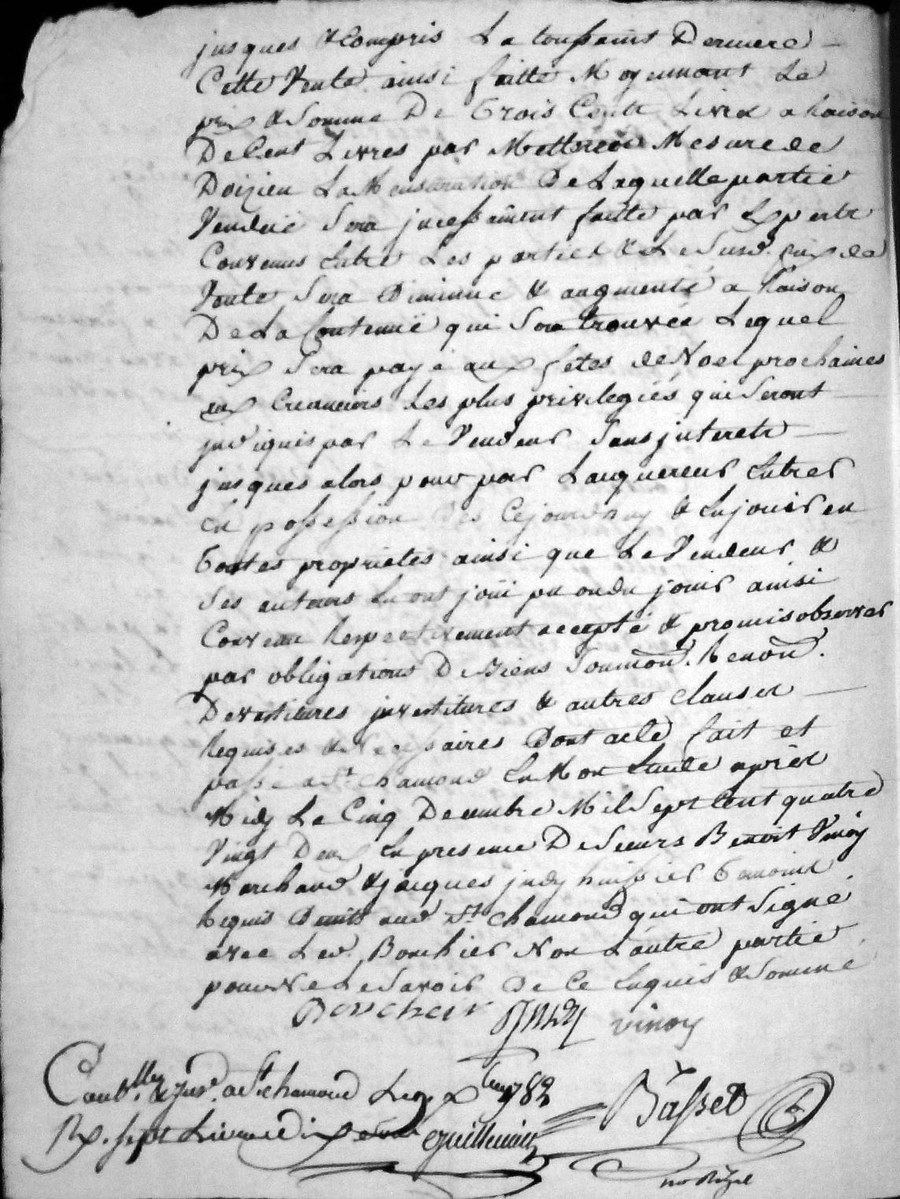 jusques & compris La toussaint Derniere
Cette Vente ainsi faitte Moyennant Le
prix & Somme De trois Cents Livres a Raison
De Cent Livres par Metterée Mesure de
Doizieu La Mensuration De Laquelle partie
Vendue Sera jncessâment faitte par Experts
Convenus Entre Les parties & Le Susd. prix de
Vente Sera Diminué & augmenté a Raison
De La Contenuë qui Sera trouvée Lequel
prix Sera payé aux fetes de Noel prochaines
aux Creanciers Les plus privilegiés qui Seront
jndiqués par Le Vendeur Sans jnterets
jusques alors pour par Lacquereur Entrer
En possession Des Cejourdhuy & En jouir en
toutes proprietés ainsi que Le Vendeur &
Ses auteurs En ont joui pu ou du jouir ainsi
Convenu Respectivement accepté & promis observer
par obligations De Biens Soumôn. Renoôn.
Devestitures jnvestitures & autres clauses
Requises & Necessaires Dont acte fait et
passé a St. chamond En Mon Etude après
Midy Le Cinq Decembre Mil Sept Cent quatre
Vingt Deux En presence De Sieurs Benoit Vinoy
Marchand & jacques judy huissier temoins
Requis aud. St. chamond qui ont Signé
avec Led. Bouchier Non L'autre partie
pour Ne Le Savoir De Ce Enquis & Sommé
Boucheir Judy vinoy
Contllé & Jnsé. a St. chamond Le 1782
Rx. Sept Livres dix Guillemin Basset
no Royal